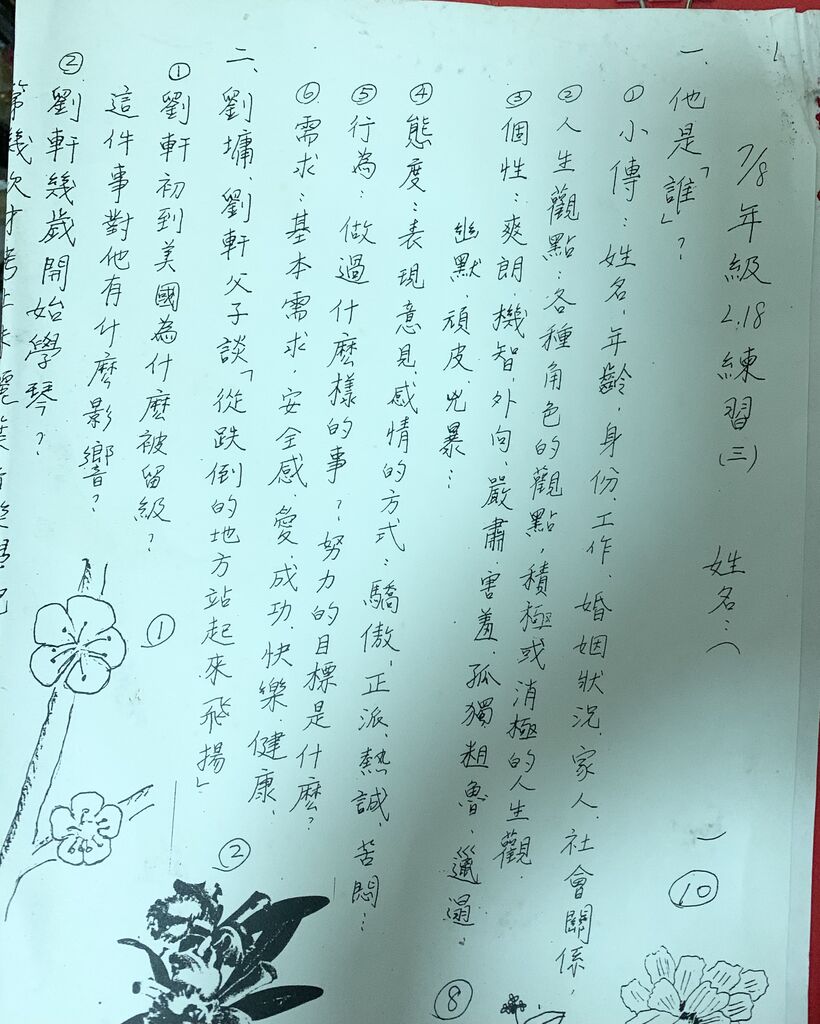 7/8年級 2.18 練習(三) 姓名:( )
一、他是「誰」?
①小傳:姓名,年齡,身份.工作,婚姻狀況.家人.社會關係,
②人生觀點:各種角色的觀點,積極或消極的人生觀.
③個性:爽朗.機智,外向、嚴肅.害羞.孤獨.粗魯、邋遢、
幽默.頑皮.兇暴…
④態度:表現意見.感情的方式:驕傲,正派、熱誠、苦悶…
⑤行為:做過什麼樣的事?努力的目標是什麼?
⑥需求:基本需求.安全感.愛.成功.快樂.健康.
二、劉墉、劉軒父子談「從跌倒的地方站起來飛揚」
①劉軒初到美國為什麼被留級?
這件事對他有什麼影響?
②劉軒幾歲開始學琴?
第幾次才考上
1
⑩
⑧
②
①